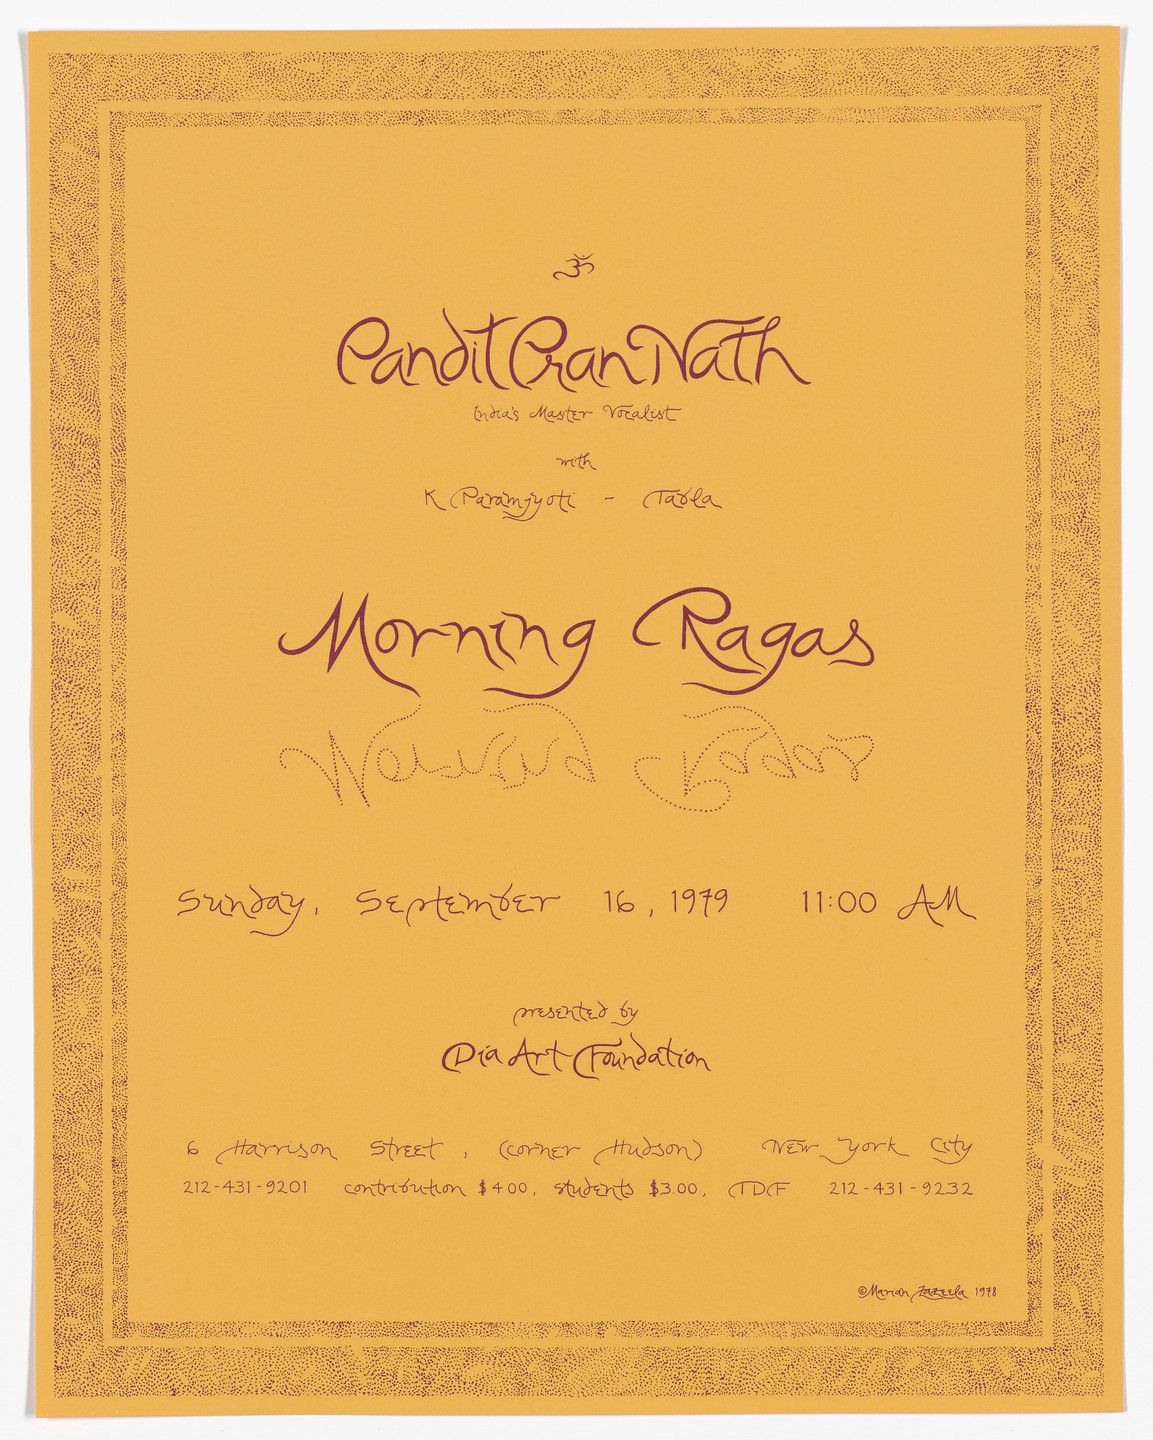 ॐ
Pandit Pran Nath
India's Master Vocalist
with
K Paramjyoti - Tabla
Morning Ragas
Sunday, September 16, 1979 11:00 AM
presented by
Dia Art Foundation
6 Harrison Street, (corner Hudson) New York City
212-431-9201 contribution $4.00, students $3.00, TDF 212-431-9232
©Marian Zazeela 1978